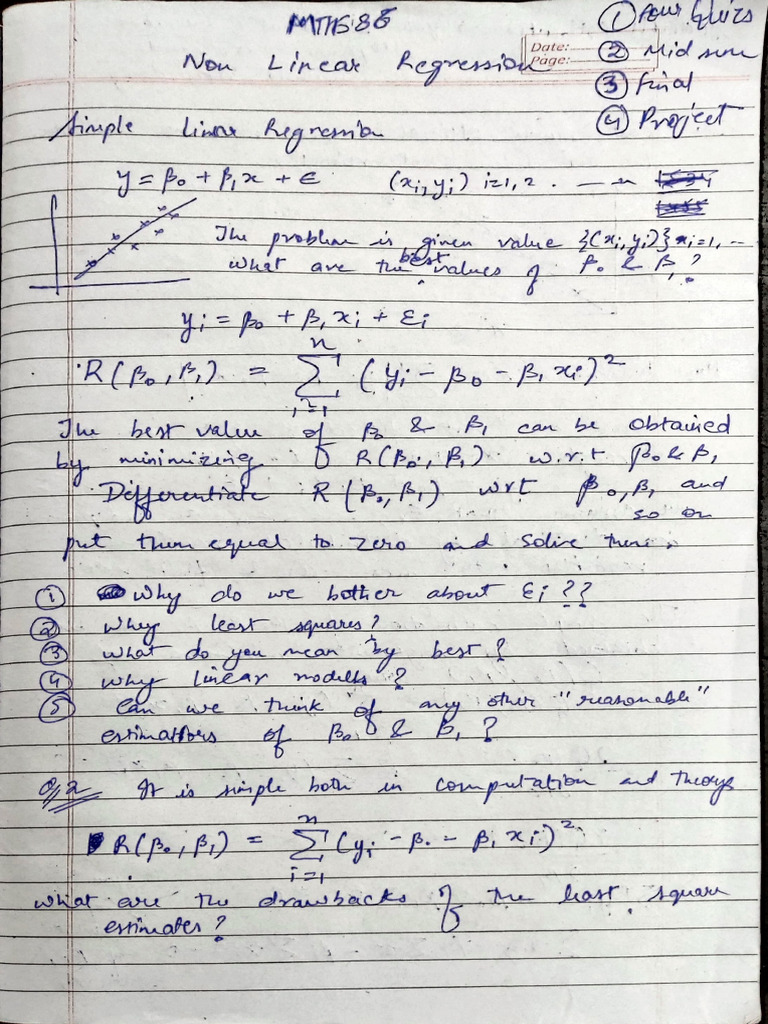 MTH686
① Four Quizs
Non Linear Regression
Date:
Page:
② Mid sem
③ Final
④ Project
Simple Linear Regression
y = β₀ + β₁x + ϵ (xᵢ, yᵢ) i=1, 2 . — n
The problem is given value {(xᵢ, yᵢ)} i=1, ...
what are the best values of β₀ & β₁?
yᵢ = β₀ + β₁xᵢ + εᵢ
R(β₀, β₁) = ∑ᵢ₌₁ⁿ (yᵢ - β₀ - β₁xᵢ)²
The best value of β₀ & β₁ can be obtained
by minimizing of R(β₀, β₁) w.r.t β₀ & β₁
Differentiate R(β₀, β₁) wrt β₀, β₁ and
so on
put them equal to zero and solve them.
① Why do we bother about εᵢ??
② Why least squares?
③ What do you mean by best?
④ Why linear models?
⑤ Can we think of any other "reasonable"
estimators of β₀ & β₁?
Q.2 It is simple both in computation and theory
R(β₀, β₁) = ∑ᵢ₌₁ⁿ (yᵢ - β₀ - β₁xᵢ)²
What are the drawbacks of the least square
estimates?